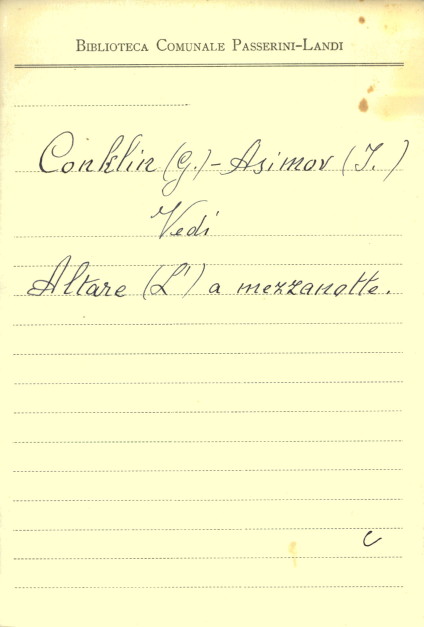 Biblioteca Comunale Passerini-Landi
Conklin (G.) - Asimov (I.)
Vedi
Altare (L') a mezzanotte.
C